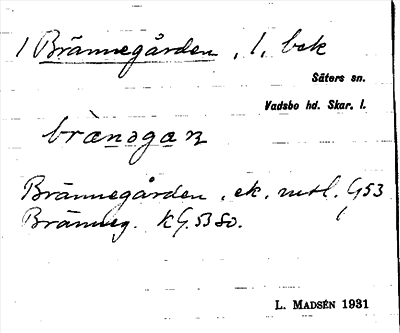 1 Brännegården, l. bck
Säters sn.
Vadsbo hd. Skar. l.
Brännegården, ek. mtl. G53
Bränneg. KG. 53 So.
L. MADSÉN 1931